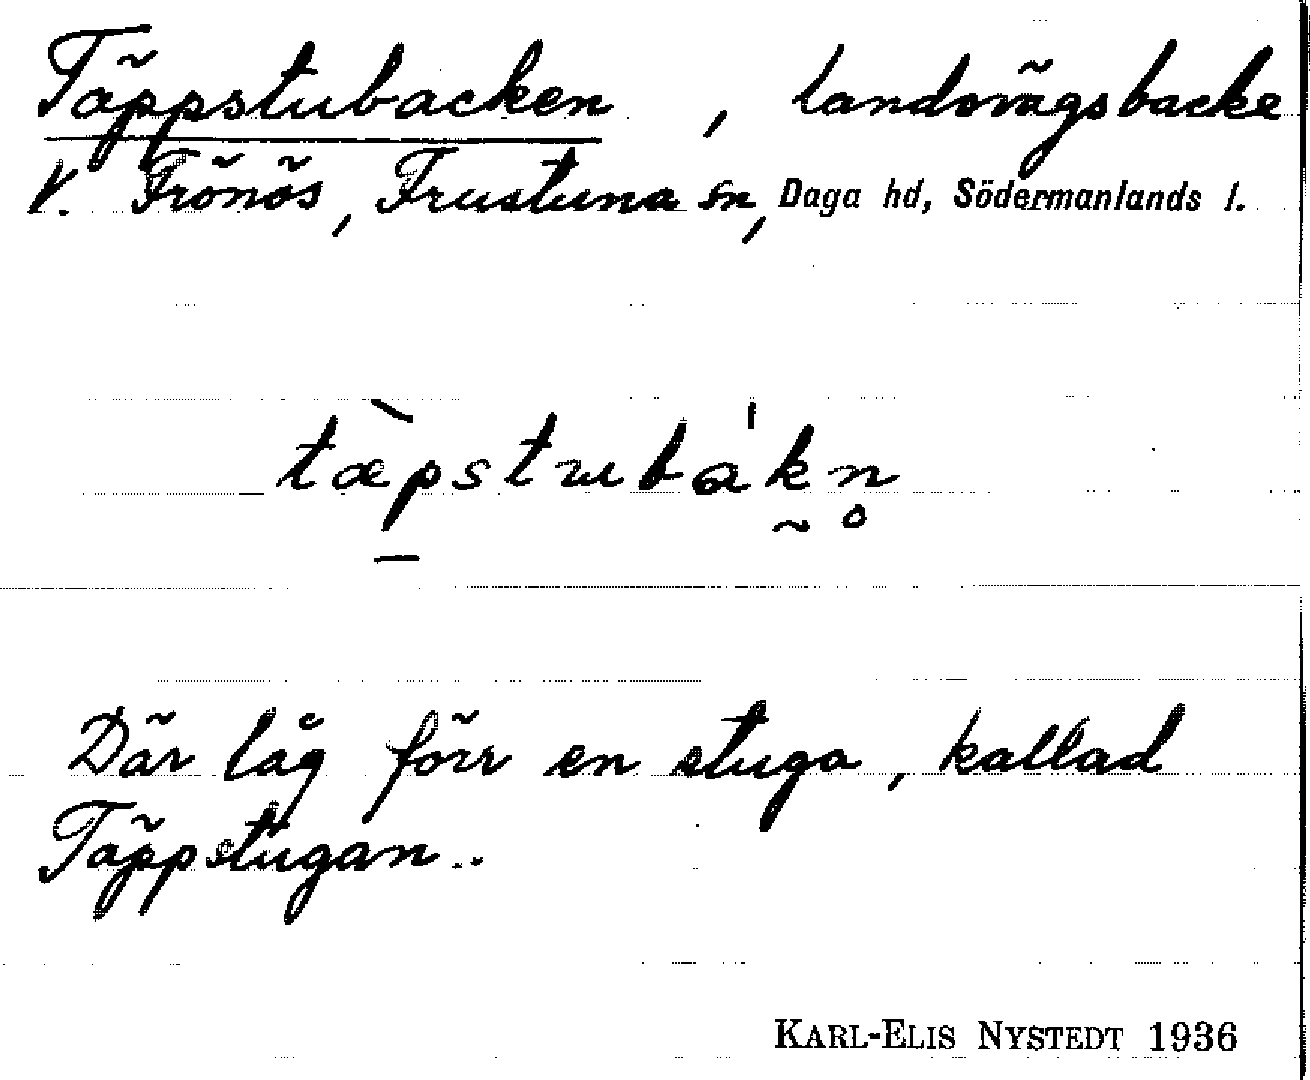 Täppstubacken, landsvägsbacke
V. Frönös, Frustuna sn, Daga hd, Södermanlands l.
tæ̀pstɯba̍k̰n̥
Där låg förr en stuga, kallad
Täppstugan..
KARL-ELIS NYSTEDT 1936